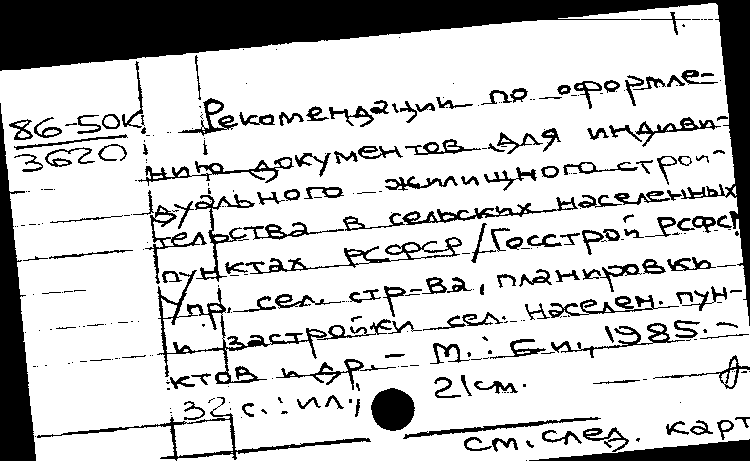 1.
86-50К
3620
Рекомендации по оформле-
нию документов для индиви-
дуального жилищного строи-
тельства в сельских населенных
пунктах РСФСР/Госстрой РСФСР,
Упр. сел. стр-ва, планировки
и застройки сел. населен. пун-
ктов и др. - М.: Б.и., 1985. -
32 с.: ил.; 21см.
см. след. карт